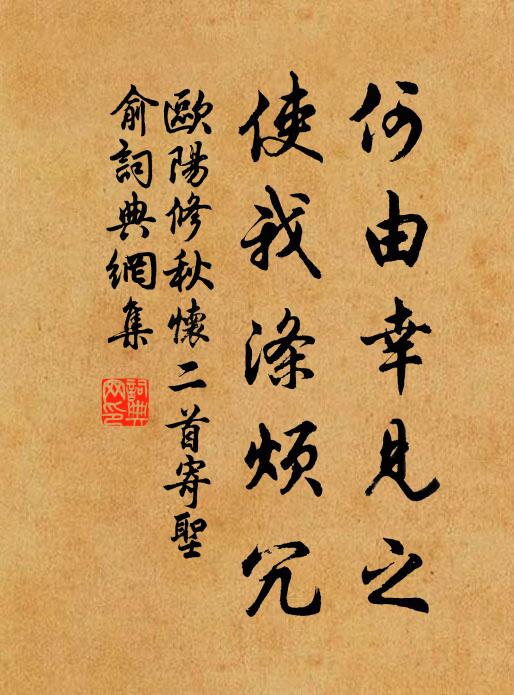 何由幸見之
使我滌煩冗
歐陽修秋懷二首寄聖
俞詞典網集
詞典網印